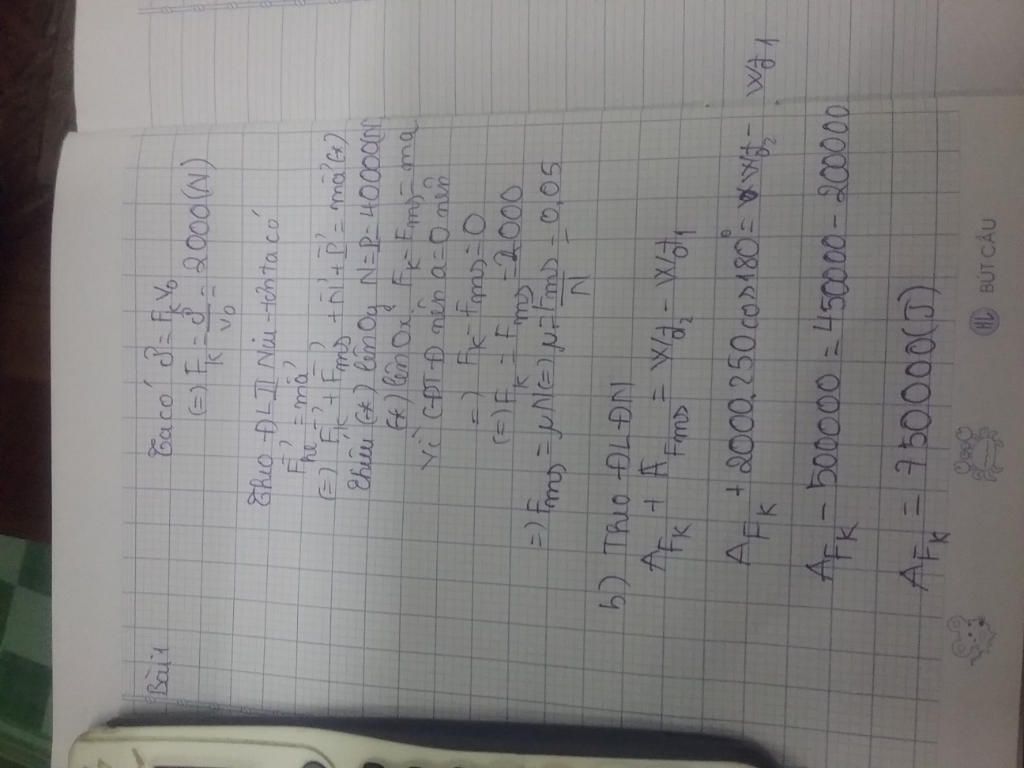 Bài 1
Ta có P = Fk v0
(=) Fk = P/v0 = 2000 (N)
Theo ĐL II Niu-tơn ta có
Fhl = ma
(=) Fk + Fms + N + P = ma (*)
Chiếu (*) lên Oy N = P = 40000 (N)
(*) lên Ox Fk - Fms = ma
Vì CĐTĐ nên a = 0 nên
=) Fk - Fms = 0
(=) Fk = Fms = 2000
=) Fms = μN (=) μ = Fms/N = 0,05
b) Theo ĐLĐN
AFk + AFms = Wđ2 - Wđ1
AFk + 2000.250cos180° = Wđ2 - Wđ1
AFk - 500000 = 450000 - 200000
AFk = 750000 (J)
BÚT CẦU